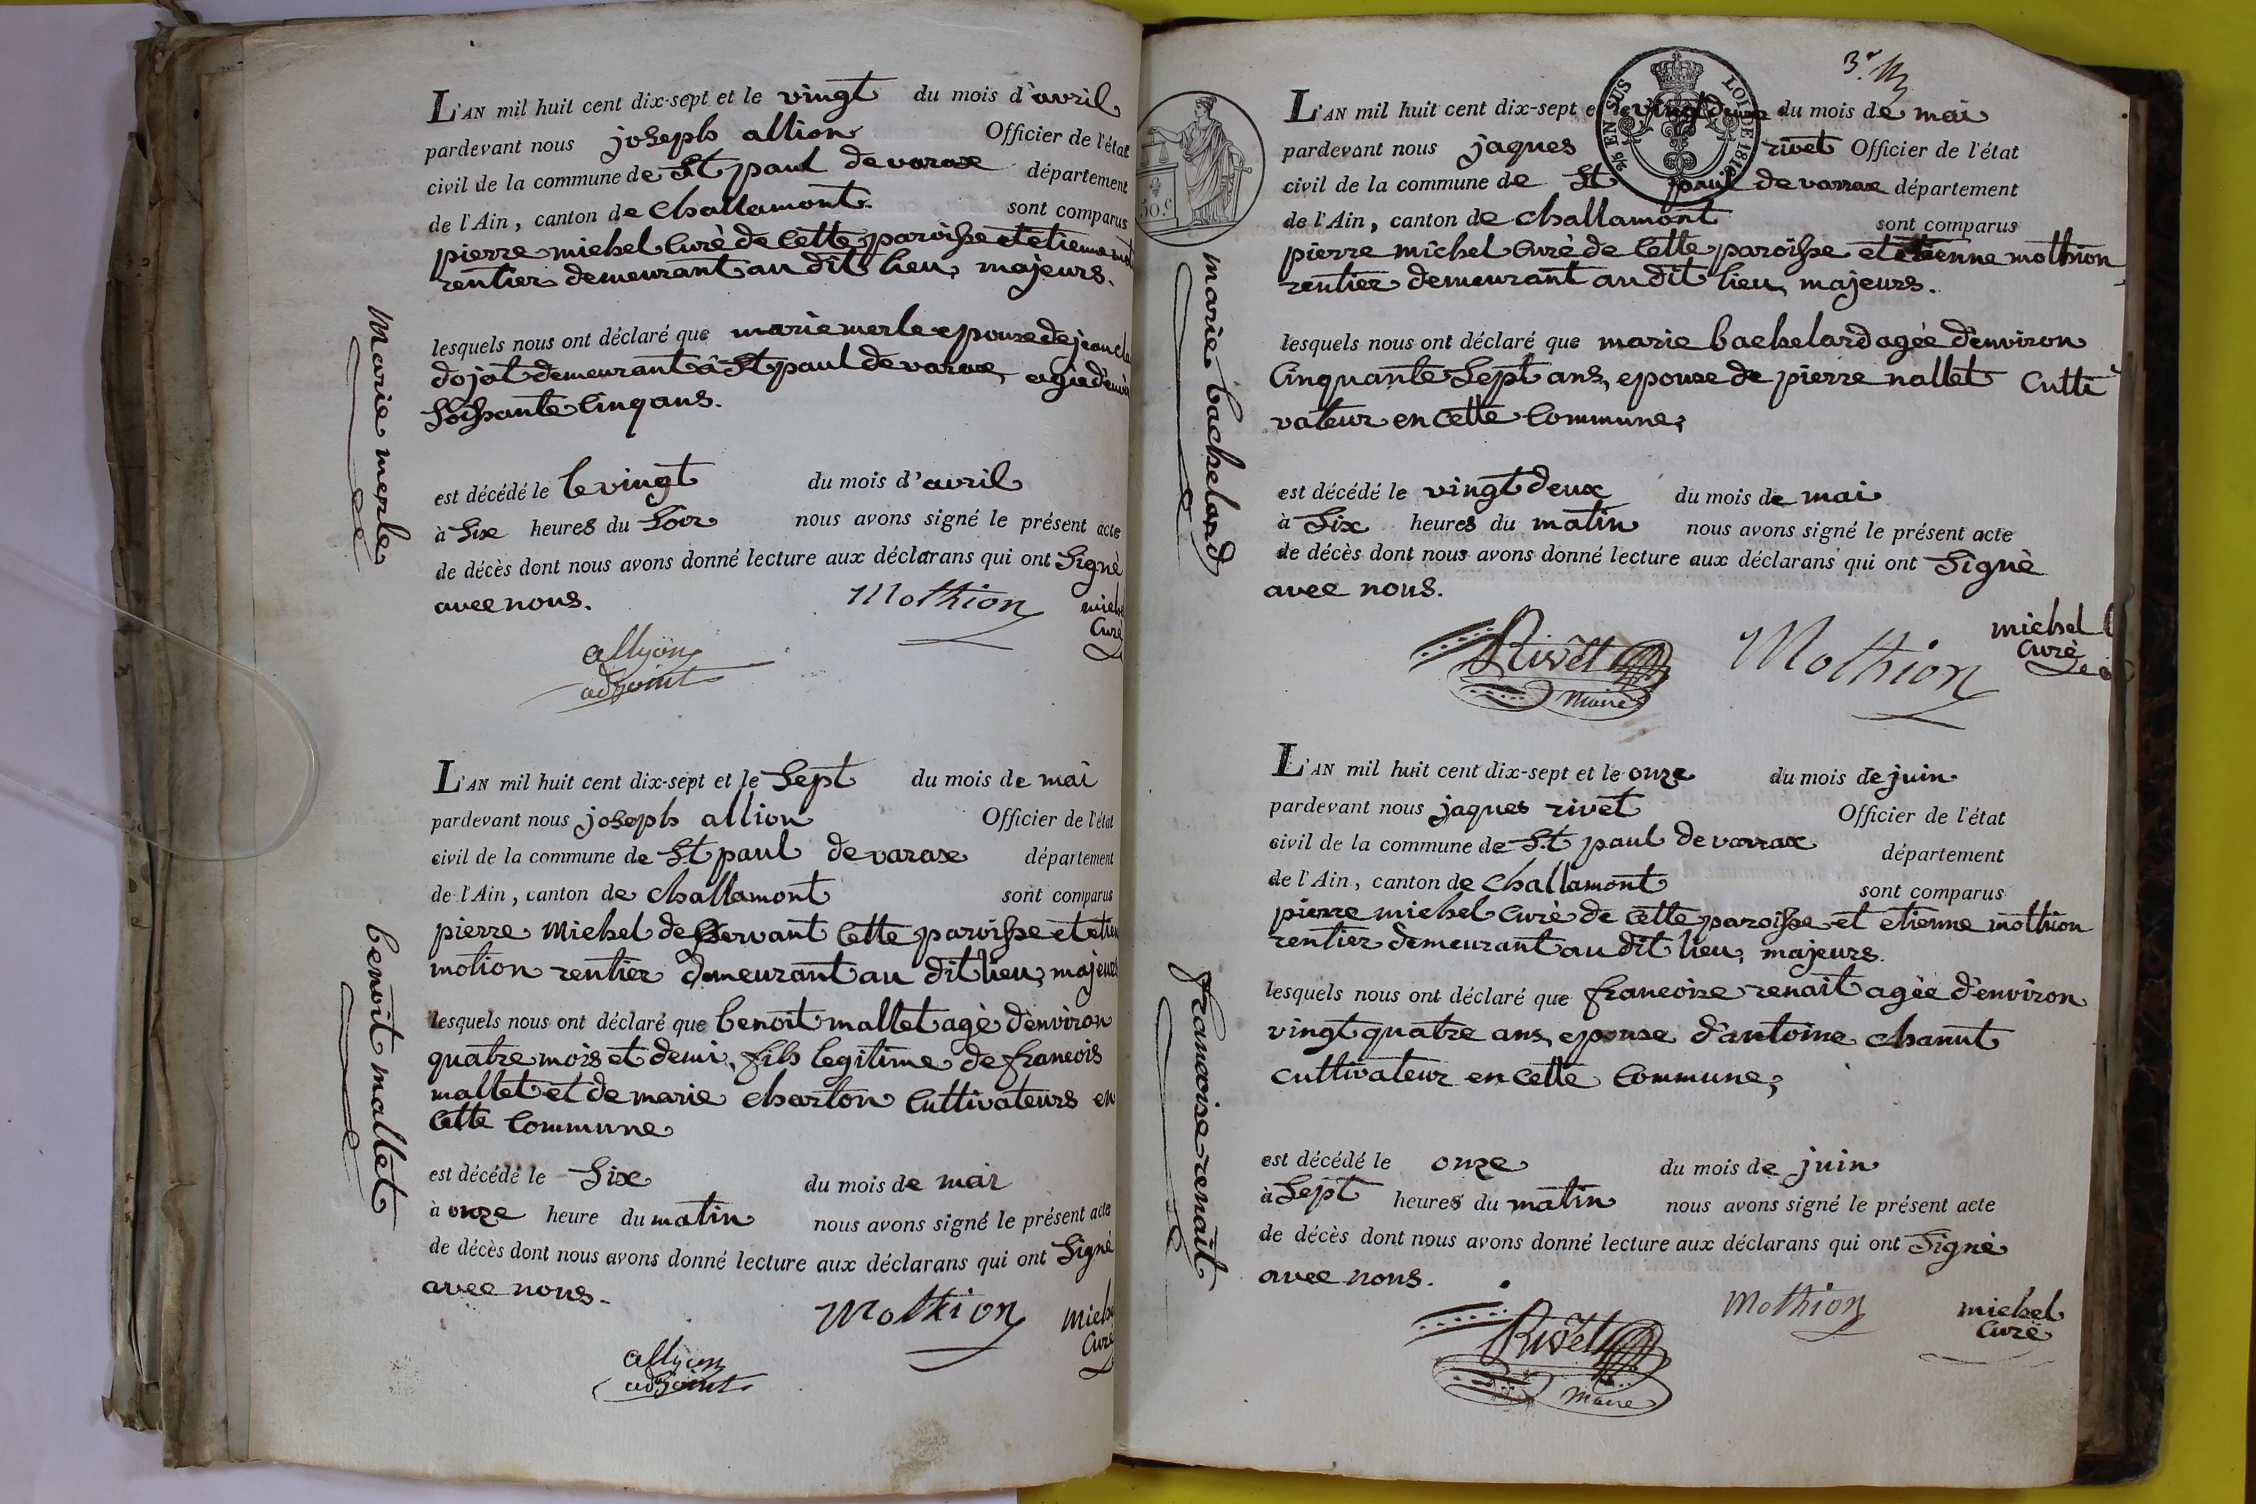 L'AN mil huit cent dix-sept et le vingt du mois d'avril
pardevant nous joseph allion Officier de l'état
civil de la commune de St paul de varax département
de l'Ain, canton de challamont sont comparus
pierre michel curè de cette paroisse et etienne
rentier demeurant au dit lieu, majeurs.
lesquels nous ont déclaré que marie merle epouse de jean
dojat demeurant â St paul de varax, agée
soissante cinq ans.
est décédé le le vingt du mois d'avril
à six heures du soir nous avons signé le présent acte
de décès dont nous avons donné lecture aux déclarans qui ont signè
avec nous.
Mothion
curè
allyon
adjoint
marie merle
L'AN mil huit cent dix-sept et le sept du mois de mai
pardevant nous joseph allion Officier de l'état
civil de la commune de St paul de varax département
de l'Ain, canton de challamont sont comparus
pierre michel deservant cette paroisse et
motion rentier demeurant au dit lieu, majeurs
lesquels nous ont déclaré que benoit mallet agè d'environ
quatre mois et demi, fils legitime de francois
mallet et de marie charton cultivateurs en
cette commune
est décédé le six du mois de mai
à onze heure du matin nous avons signé le présent acte
de décès dont nous avons donné lecture aux déclarans qui ont signè
avec nous.
Mothion
curè
allyon
adjoint
benoit mallet
3.e
EN SUS
LOI DE 1816
50.c
L'AN mil huit cent dix-sept et le vingt deux du mois de mai
pardevant nous jaques rivet Officier de l'état
civil de la commune de St paul de varrax département
de l'Ain, canton de challamont sont comparus
pierre michel curè de cette paroisse et etienne mothion
rentier demeurant au dit lieu, majeurs.
lesquels nous ont déclaré que marie bachelard agèe d'environ
cinquante sept ans, epouse de pierre nallet culti
vateur en cette commune,
est décédé le vingt deux du mois de mai
à six heures du matin nous avons signé le présent acte
de décès dont nous avons donné lecture aux déclarans qui ont signè
avec nous.
Rivet Mothion michel
maire curè
marie bachelard
L'AN mil huit cent dix-sept et le onze du mois de juin
pardevant nous jaques rivet Officier de l'état
civil de la commune de St paul de varrax département
de l'Ain, canton de challamont sont comparus
pierre michel curè de cette paroisse et etienne mothion
rentier demeurant au dit lieu, majeurs.
lesquels nous ont déclaré que francoise renait agèe d'environ
vingt quatre ans, epouse d'antoine chanut
cultivateur en cette commune,
est décédé le onze du mois de juin
à sept heures du matin nous avons signé le présent acte
de décès dont nous avons donné lecture aux déclarans qui ont signè
avec nous.
Rivet Mothion michel
maire curè
francoise renait